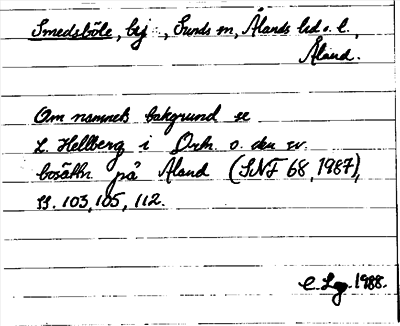 Smedsböle, by, Sunds sn, Ålands hd o. l.,
Åland.
Om namnets bakgrund se
L. Hellberg i Ortn. o. den sv.
bosättn. på Åland (SNF 68, 1987),
ss. 103, 105, 112.
1988.